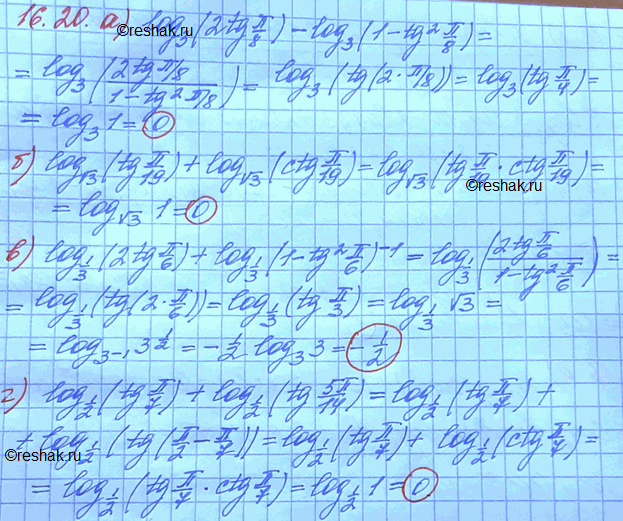 16.20. а) log₃(2tg π/8) - log₃(1-tg² π/8) =
©reshak.ru
= log₃(2tg π/8 / 1-tg² π/8) = log₃(tg(2·π/8)) = log₃(tg π/4) =
= log₃ 1 = 0
б) log_√3(tg π/19) + log_√3(ctg π/19) = log_√3(tg π/19 · ctg π/19) =
©reshak.ru
= log_√3 1 = 0
в) log_1/3(2tg π/6) + log_1/3(1-tg² π/6)⁻¹ = log_1/3(2tg π/6 / 1-tg² π/6) =
= log_1/3(tg(2·π/6)) = log_1/3(tg π/3) = log_1/3 √3 =
= log_3⁻¹ 3^1/2 = -1/2 log₃ 3 = -1/2
г) log_1/2(tg π/7) + log_1/2(tg 5π/14) = log_1/2(tg π/7) +
+ log_1/2(tg(π/2 - π/7)) = log_1/2(tg π/7) + log_1/2(ctg π/7) =
©reshak.ru
= log_1/2(tg π/7 · ctg π/7) = log_1/2 1 = 0